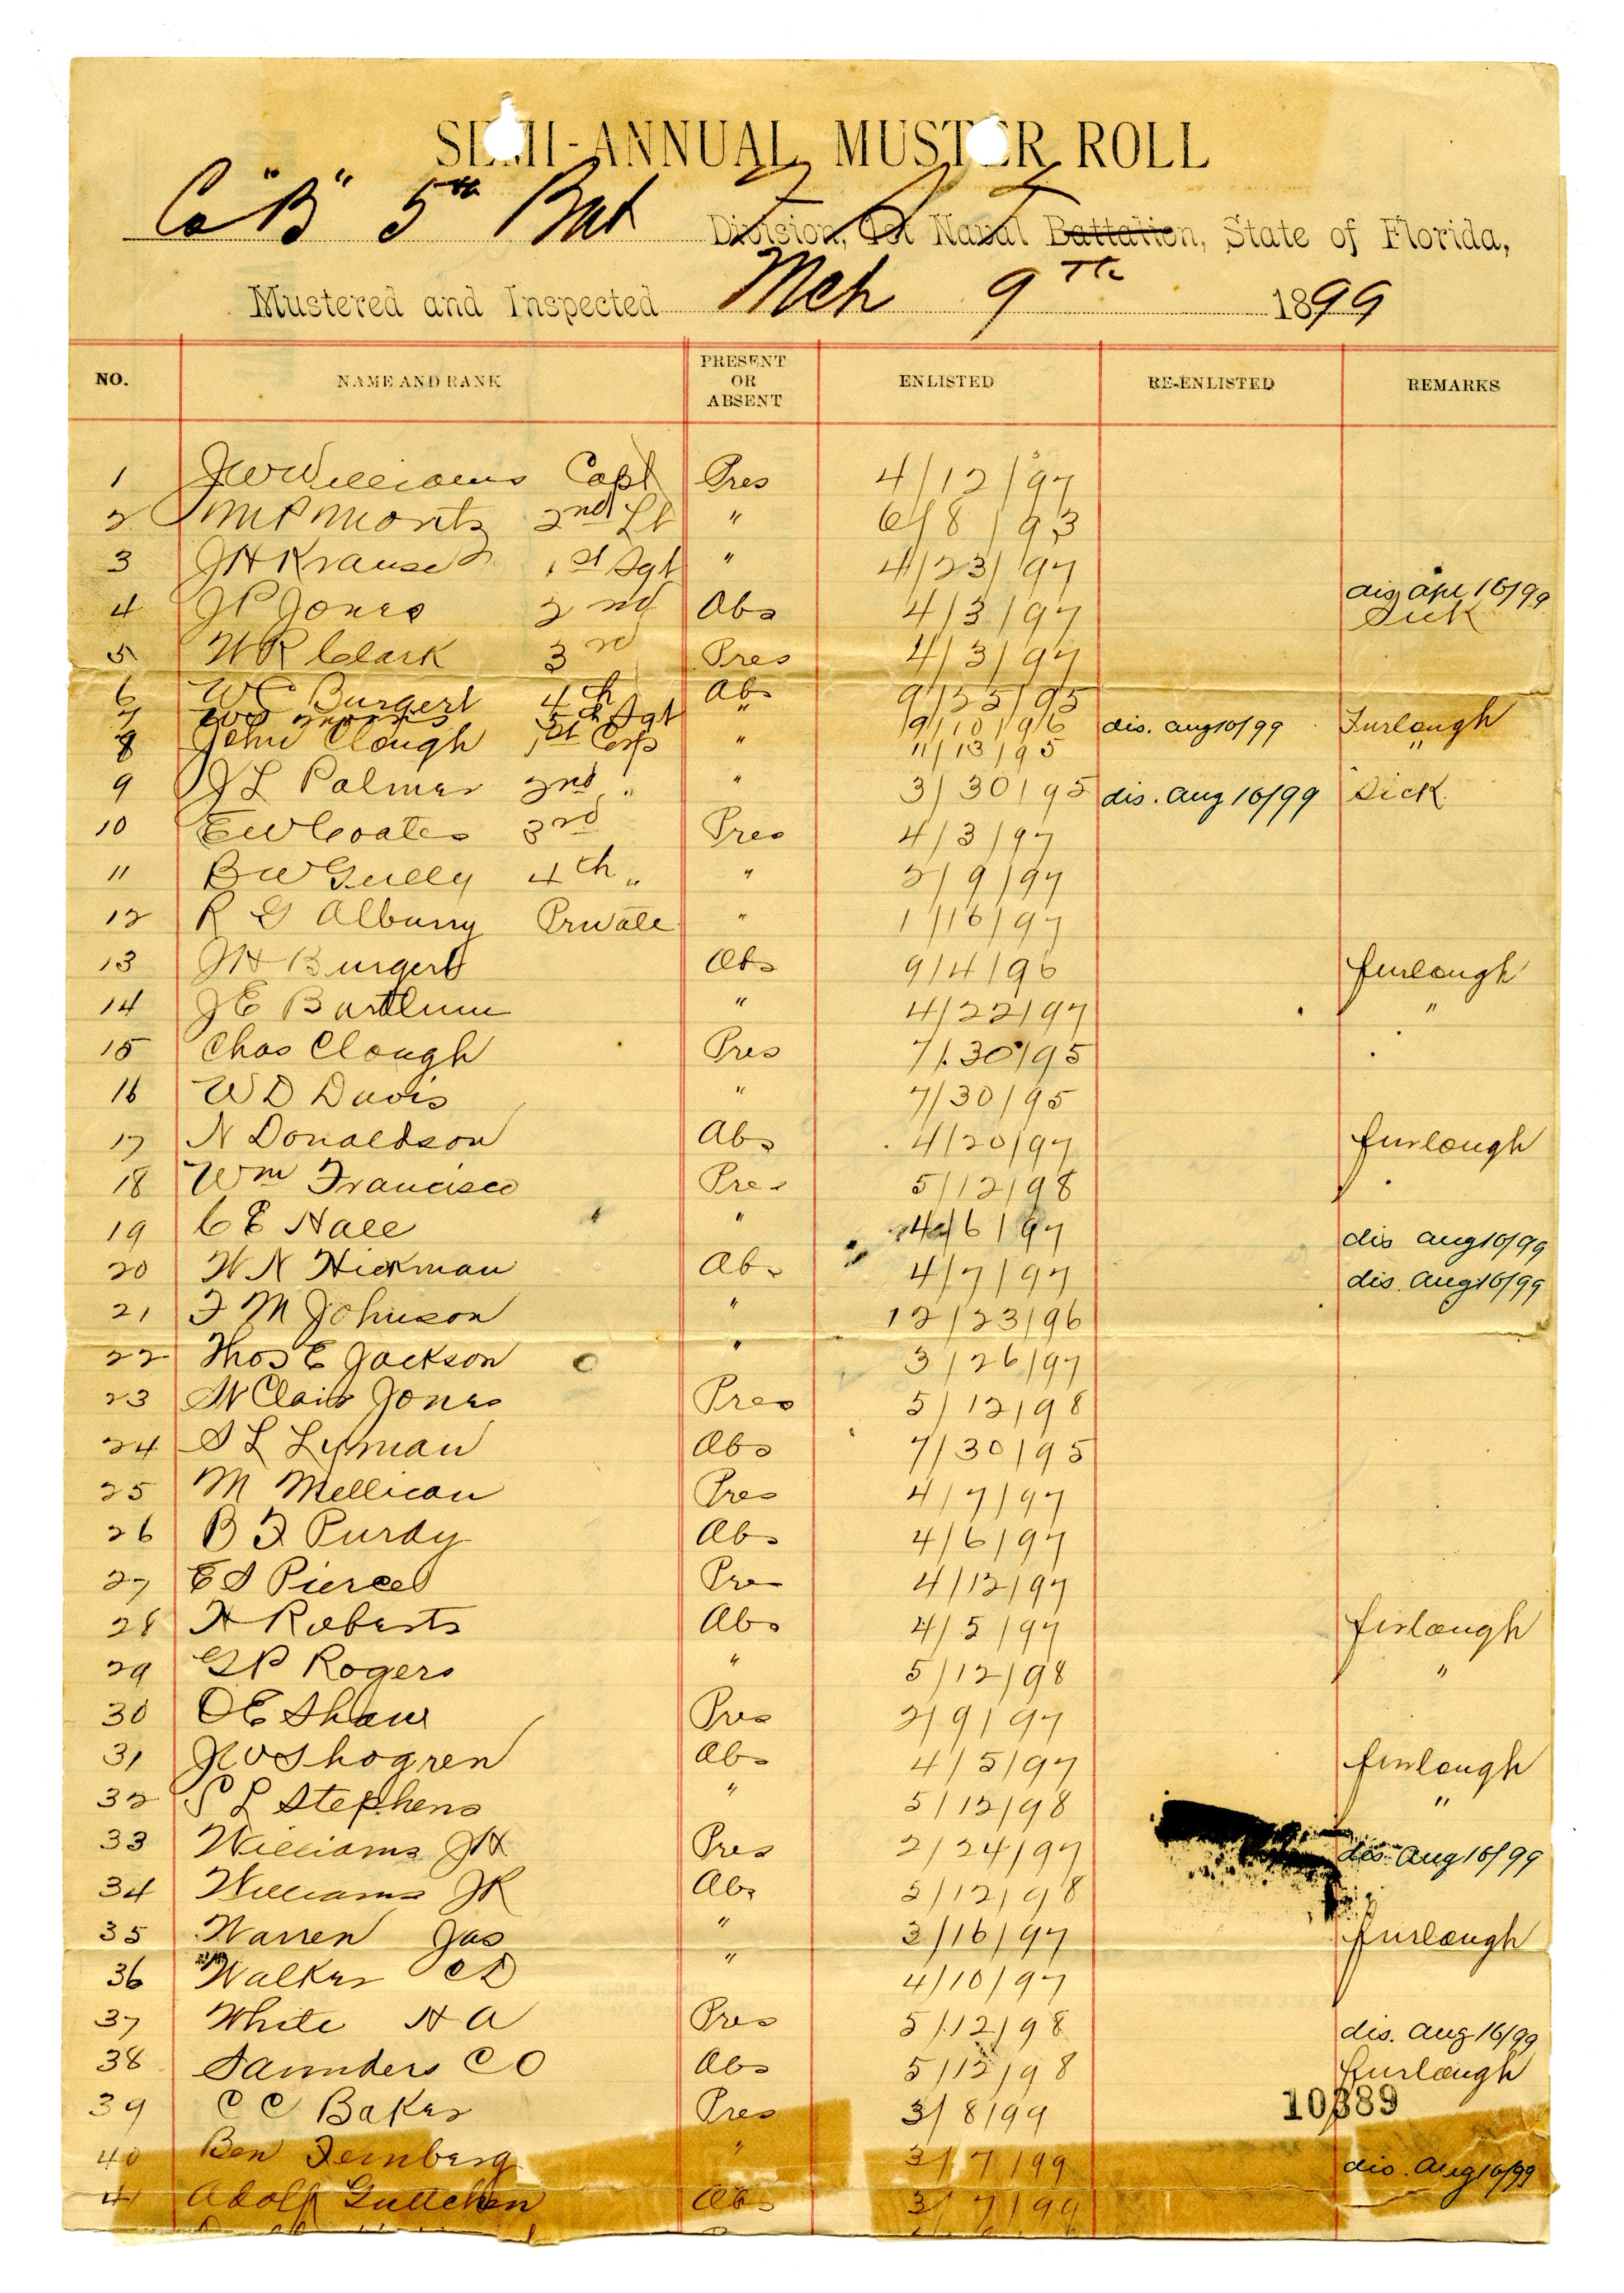 SEMI-ANNUAL MUSTER ROLL
Co "B" 5th Bat F S T Division, 1st Naval Battalion, State of Florida,
Mustered and Inspected Mch 9th 1899
NO. NAME AND RANK PRESENT OR ABSENT ENLISTED RE-ENLISTED REMARKS
1 JW Williams Capt Pres 4/12/97
2 MP Moritz 2nd Lt " 6/8/93
3 JH Krause 1st Sgt " 4/23/97
4 JP Jones 2nd Abs 4/3/97 dis apr 16/99 Sick
5 WR Clark 3rd Pres 4/3/97
6 WC Burgert 4th Abs 9/25/95
7 Morris 5th Sgt " 9/10/96 dis. aug 10/99 Furlough
8 John Clough 1st Corp " 11/13/95 "
9 JL Palmer 2nd " " 3/30/95 dis. aug 16/99 Sick
10 EW Coates 3rd Pres 4/3/97
11 BW Gully 4th " " 2/9/97
12 R G Alburry Private " 1/16/97
13 JH Burgert Abs 9/4/96 furlough
14 JE Bartlum " 4/22/97 "
15 Chas Clough Pres 7/30/95
16 WD Davis " 7/30/95
17 N Donaldson Abs 4/20/97 furlough
18 Wm Francisco Pres 5/12/98
19 CE Hall " 4/6/97 dis aug 10/99
20 WN Hickman Abs 4/7/97 dis. aug 16/99
21 F M Johnson " 12/23/96
22 Thos E Jackson " 3/26/97
23 St Clair Jones Pres 5/12/98
24 S L Lyman Abs 7/30/95
25 M Mellican Pres 4/7/97
26 B F Purdy Abs 4/6/97
27 E S Pierce Pres 4/12/97
28 H Roberts Abs 4/5/97 furlough
29 GP Rogers " 5/12/98 "
30 OE Shaw Pres 2/9/97
31 JW Shogren Abs 4/5/97 furlough
32 S L Stephens " 5/12/98 "
33 Williams JH Pres 2/24/97 dis Aug 16/99
34 Williams JR Abs 5/12/98
35 Warren Jas " 3/16/97 furlough
36 Walker CD " 4/10/97
37 White H A Pres 5/12/98 dis. aug 16/99
38 Saunders C O Abs 5/12/98 furlough
39 C C Baker Pres 3/8/99
10389
40 Ben Feinberg " 3/7/99 dis. Aug 16/99
41 Adolf Abs 3/7/99